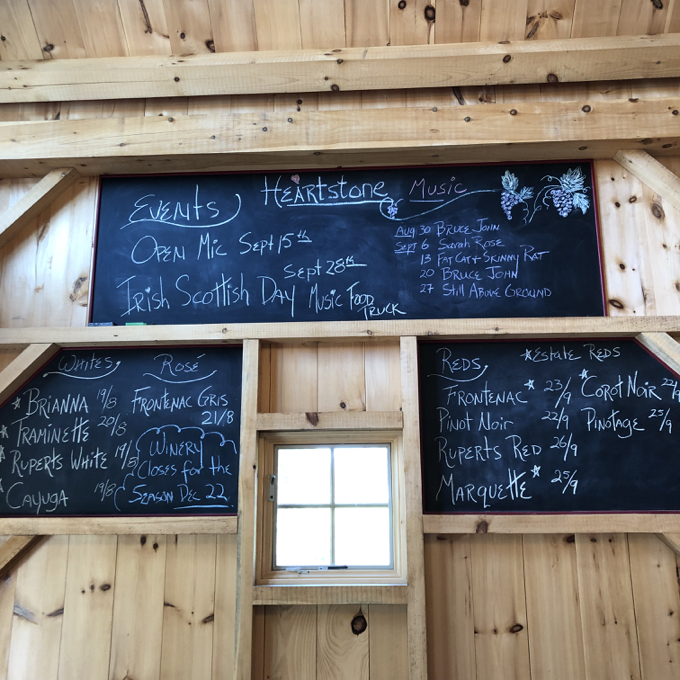 Heartstone
Events
Open Mic Sept 15th
Sept 28th
Irish Scottish Day Music Food
Truck
Music
Aug 30 Bruce John
Sept 6 Sarah Rose
13 Fat Cat + Skinny Rat
20 Bruce John
27 Still Above Ground
Whites
* Brianna 19/8
* Traminette 20/8
* Ruperts White 19/8
* Cayuga 19/8
Rosé
Frontenac Gris
21/8
Winery
Closes for the
Season Dec 22
Reds
*Estate Reds
Frontenac* 23/9
Pinot Noir 22/9
Ruperts Red 26/9
Marquette* 25/9
*Corot Noir
Pinotage 25/9